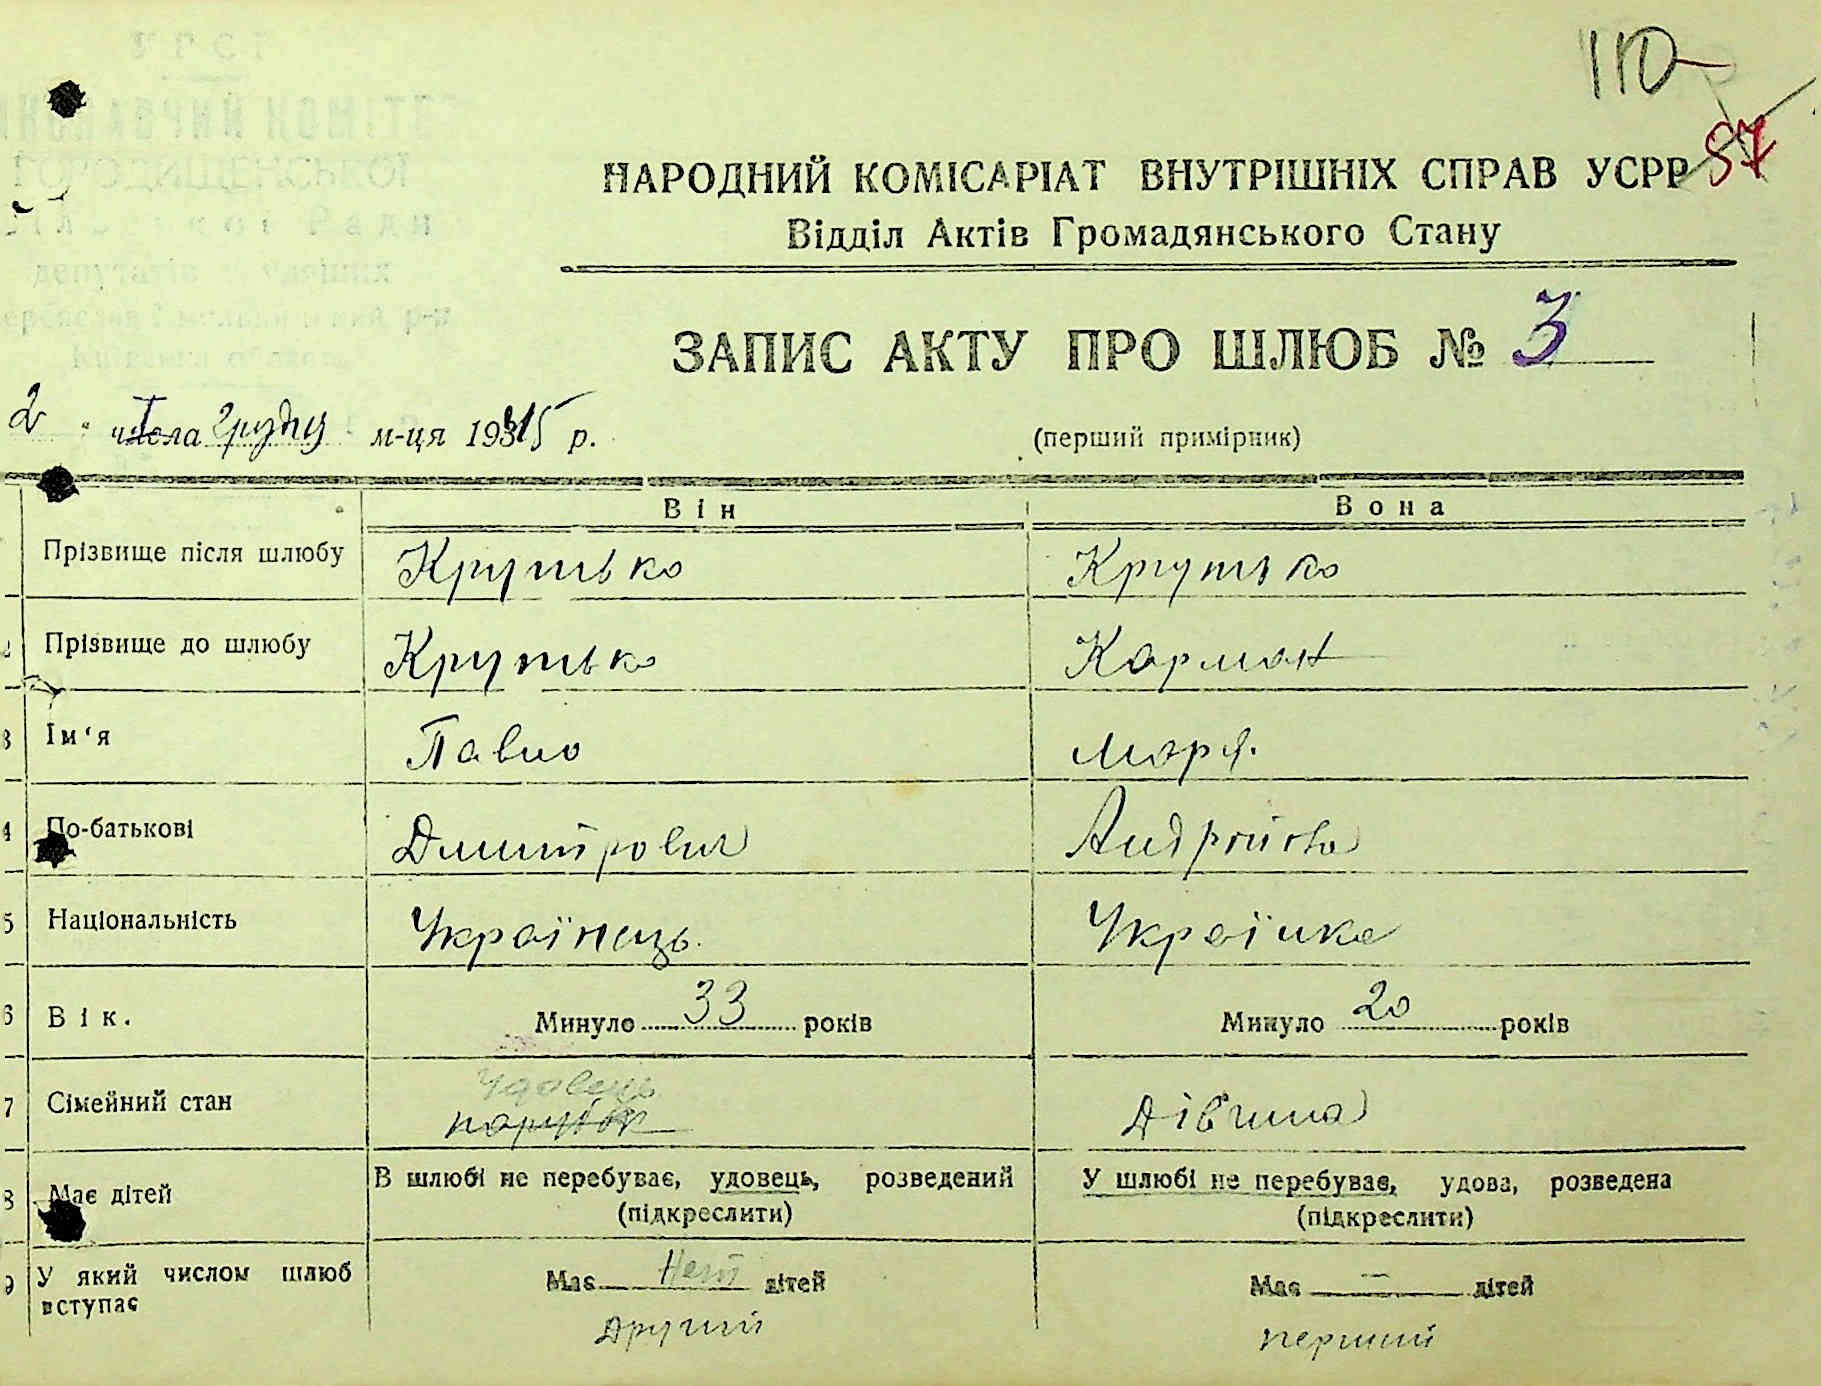 110
57
НАРОДНИЙ КОМІСАРІАТ ВНУТРІШНІХ СПРАВ УСРР
Відділ Актів Громадянського Стану
ЗАПИС АКТУ ПРО ШЛЮБ № 3
2 числа грудня м-ця 1945 р.
(перший примірник)
Він Вона
Прізвище після шлюбу Крутько Крутько
2 Прізвище до шлюбу Крутько Карман
3 Ім‘я Павло Марія
4 По-батькові Дмитрович Андріївна
5 Національність Українець Українка
6 Вік. Минуло 33 років Минуло 20 років
7 Сімейний стан Удовець парубок Дівчина
8 Має дітей В шлюбі не перебуває, удовець, розведений У шлюбі не перебуває, удова, розведена
(підкреслити) (підкреслити)
9 У який числом шлюб вступає Має Нет дітей Має — дітей
Другий перший